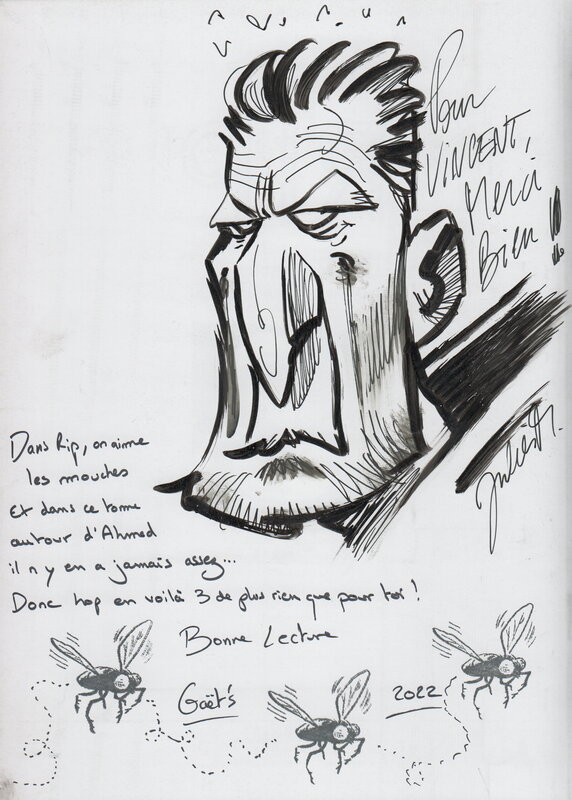 Pour
VINCENT,
Merci
Bien !!
Julien M.
Dans Rip, on aime
les mouches
Et dans ce tome
autour d'Ahmed
il n y en a jamais assez...
Donc hop en voilà 3 de plus rien que pour toi !
Bonne Lecture
Gaët's
2022